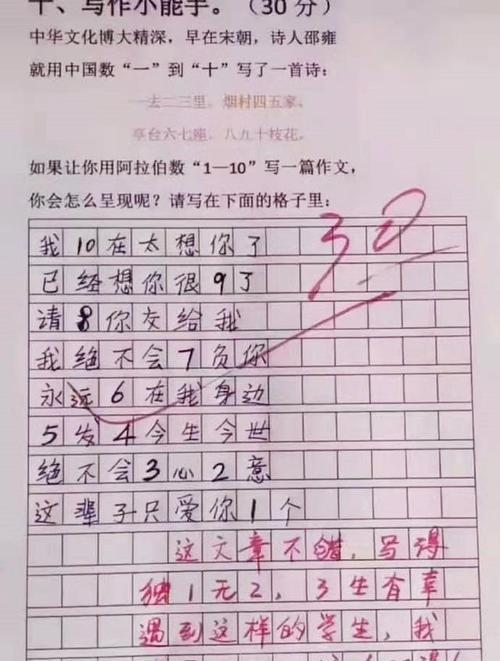 十、写作小能手。（30分）
中华文化博大精深，早在宋朝，诗人邵雍
就用中国数“一”到“十”写了一首诗：
一去二三里，烟村四五家，
亭台六七座，八九十枝花。
如果让你用阿拉伯数“1—10”写一篇作文，
你会怎么呈现呢？请写在下面的格子里：
30
我10在太想你了
已经想你很9了
请8你交给我
我绝不会7负你
永远6在我身边
5发4今生今世
绝不会3心2意
这辈子只爱你1个
这文章不错，写得
独1无2，3生有幸
遇到这样的学生，我